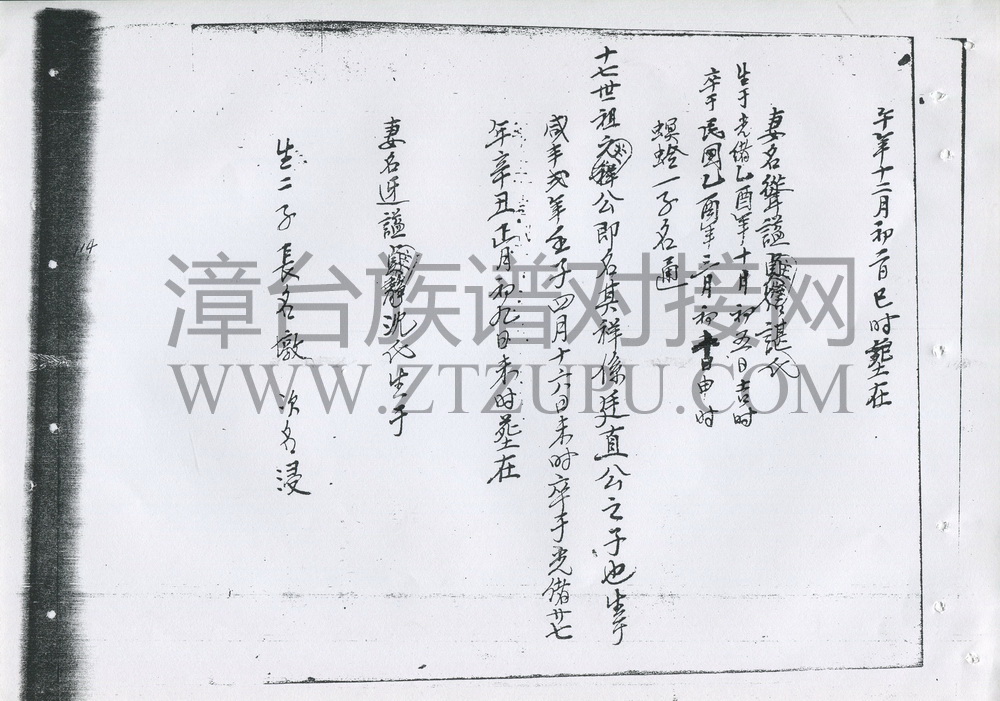 午年十二月初二日巳时葬在
妻名聳謚諶氏
生于光绪乙酉年十月初五日吉时
卒于民國乙酉年三月初 申时
螟蛉一子名通
十七世祖文 公即名其祥係廷直公之子也生于
咸丰弍年壬子四月十六日未时卒于光绪廿七
年辛丑正月初九日未时葬在
妻名迓謚 静沈氏生于
生二子長名墩 次名浸
114
漳台族谱对接网
WWW.ZTZUPU.COM